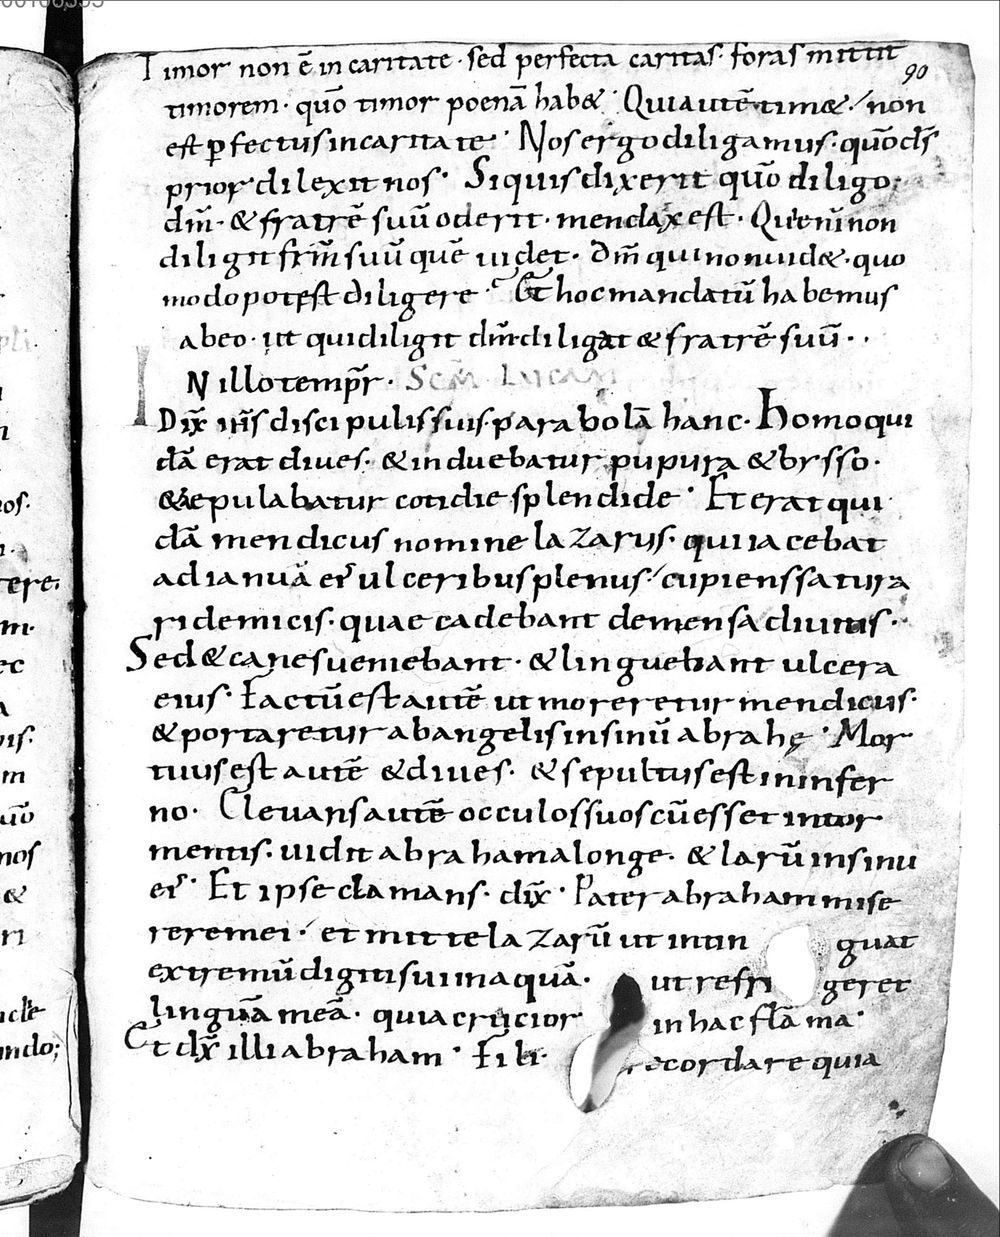 Timor non ē in caritate · sed perfecta caritas · foras mittit
90
timorem · quō timor poenā hab& · Qui autē tim& · non
est ꝑfectus in caritate · Nos ergo diligamus · quō d̄s
prior dilexit nos · Si quis dixerit quō diligo
dm̄ · & fratrē suū oderit · mendax est · Qui enī non
diligit frm̄ suū quē videt · Dm̄ qui non uid& · quo
modo potest diligere · Et hoc mandatū habemus
abeo · ut qui diligit dm̄ diligat & fratrē suū · ·
IN illo tempr̄ · Scm̄ Lucam
Dix̄ ih̄s discipulis suis · parabolā hanc · Homo qui
dā erat dives · & induebatur pupura & bysso ·
& epulabatur cotidie splendide · Et erat qui
dā mendicus nomine lazarus · qui iacebat
ad ianuā ei ulceribus plenus · cupiens satura
ri de micis · quae cadebant de mensa divitis ·
Sed & canes veniebant · & linguebant ulcera
eius · Factū est autē ut moreretur mendicus ·
& portaretur ab angelis in sinū abrahę · Mor
tuus est autē & dives · & sepultus est in infer
no · Elevans autē occulos suos cū esset in tor
mentis · vidit abraham a longe · & larū in sinu
ei · Et ipse clamans · dix̄ · Pater abraham mise
rere mei · et mitte lazarū ut intin guat
extremū digiti sui in aquā · ut refri geret
linguā meā · quia crucior in hac flāma ·
Et dx̄ illi abraham · Fili · recordare quia